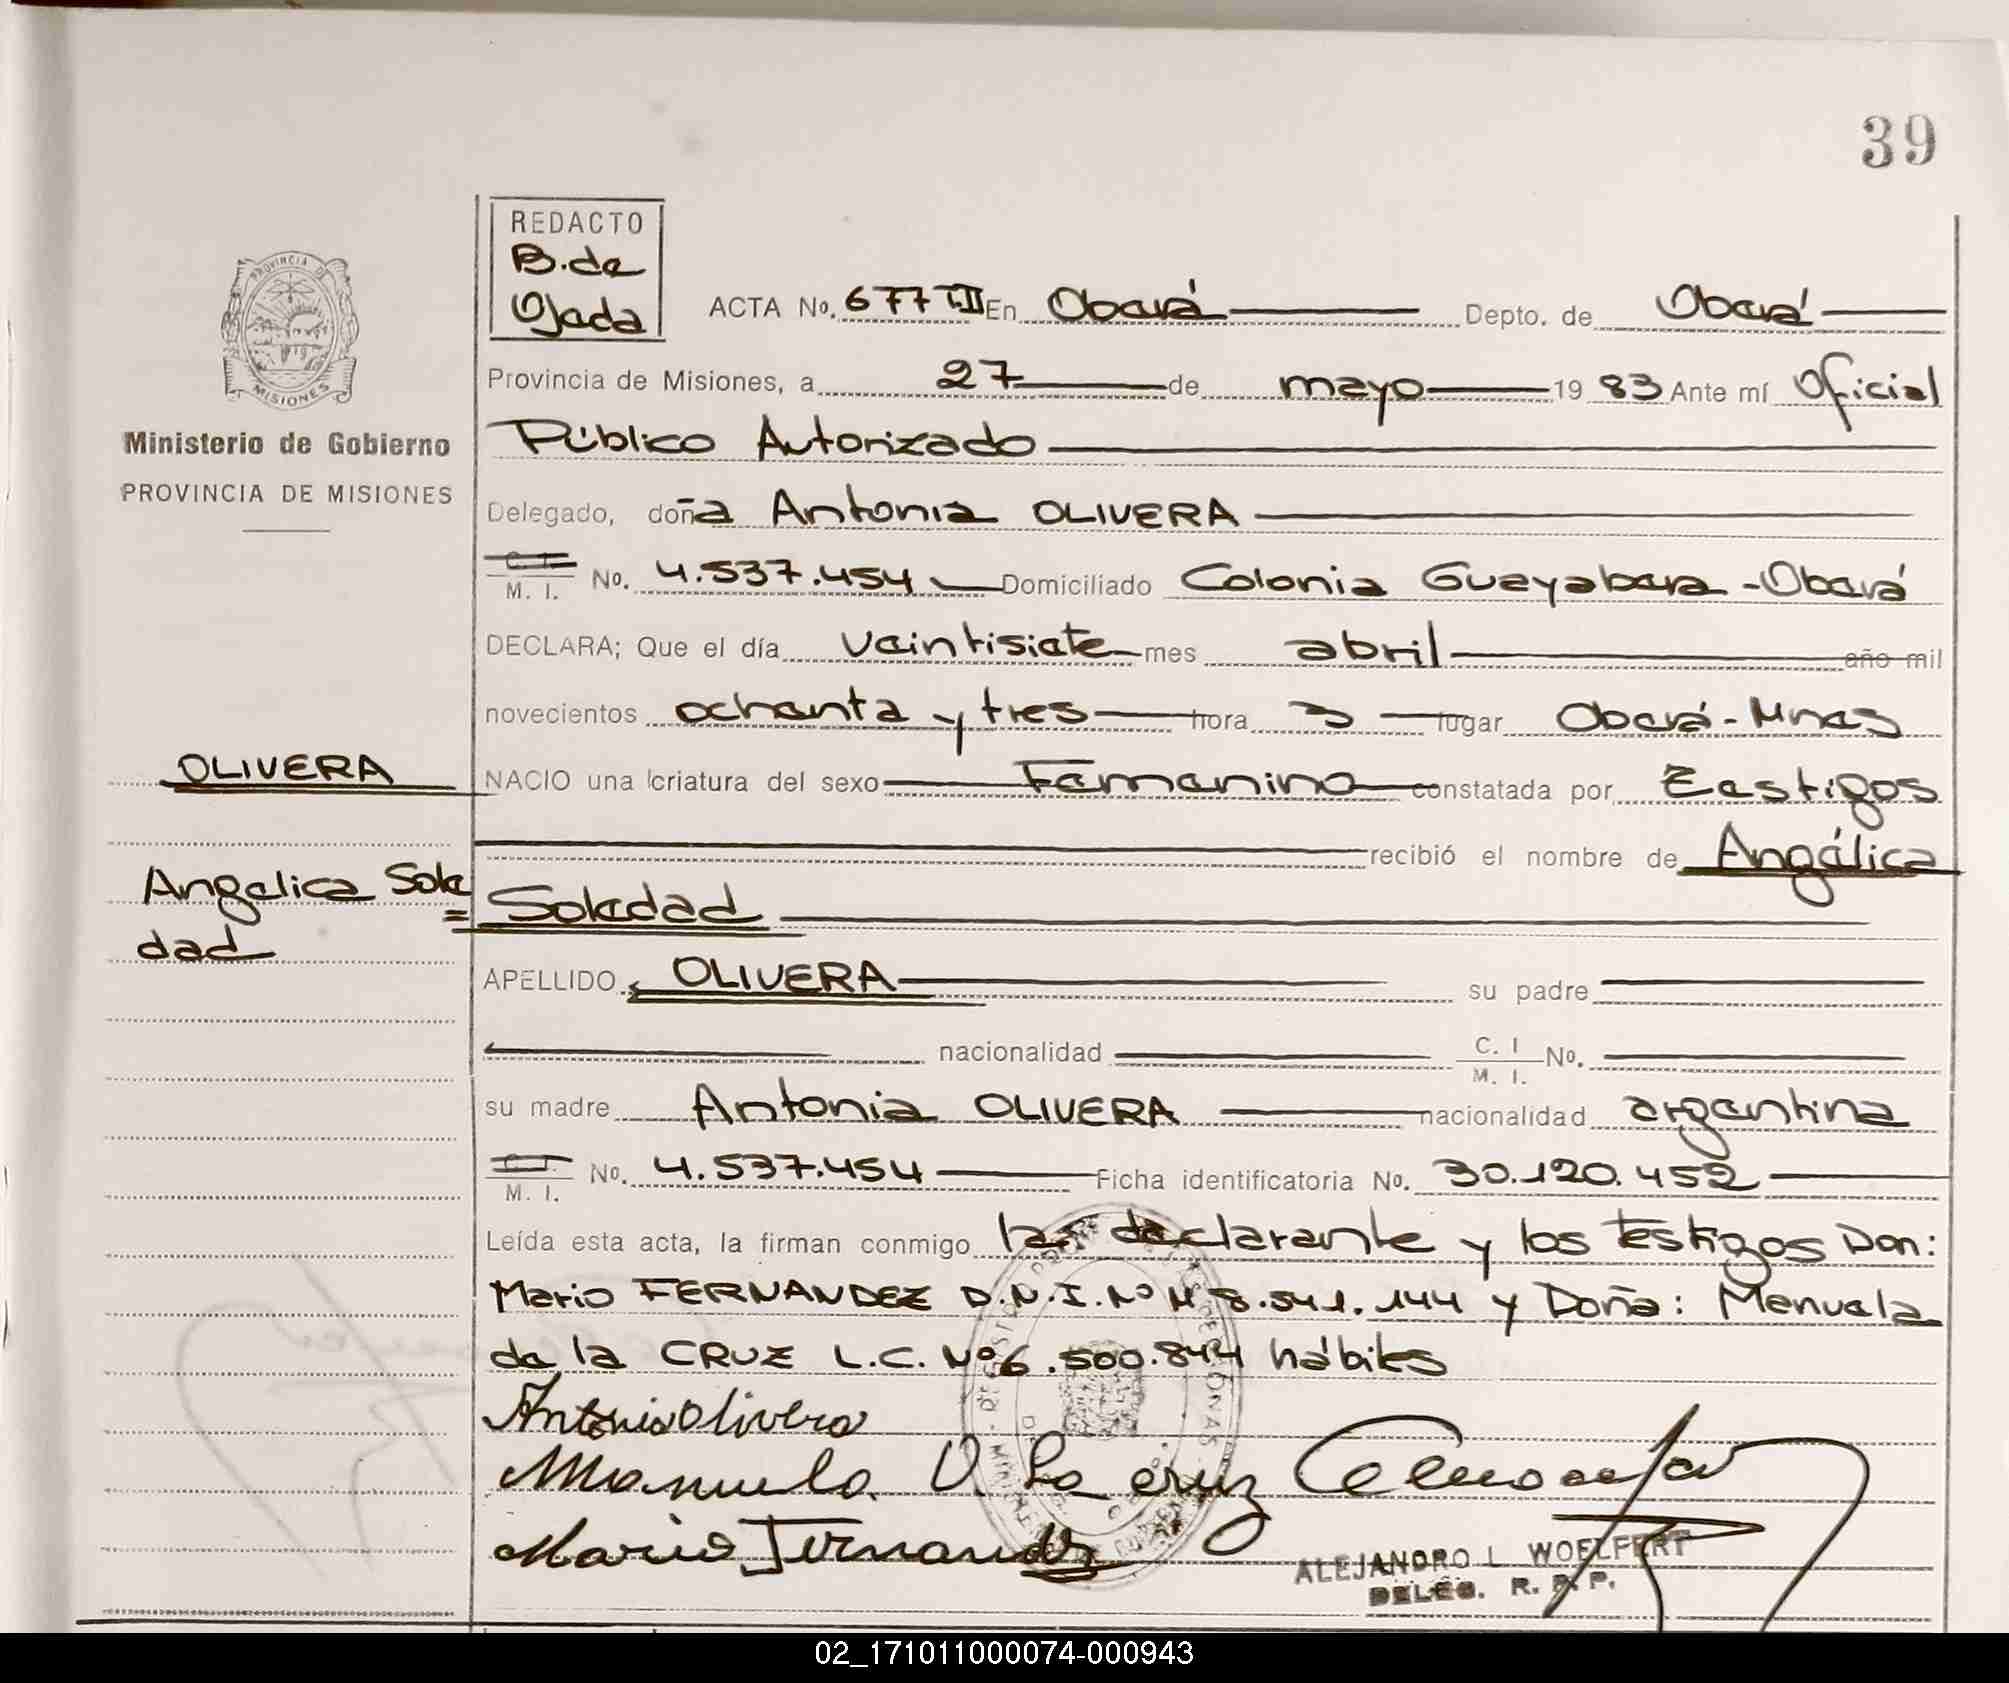 39
REDACTO
B. de
Ojeda
ACTA No. 677 T.II En Oberá Depto. de Oberá
Provincia de Misiones, a 27 de mayo 1983 Ante mí Oficial
Público Autorizado
PROVINCIA DE
MISIONES
Ministerio de Gobierno
PROVINCIA DE MISIONES
Delegado, doña Antonia OLIVERA
C. I.
M. I. No. 4.537.454 Domiciliado Colonia Guayabera - Oberá
DECLARA; Que el día veintisiete mes abril año mil
novecientos ochenta y tres hora 3 lugar Oberá - Mnes
OLIVERA
NACIO una criatura del sexo Femenino constatada por Testigos
recibió el nombre de Angélica
Angelica Sole
=
dad
Soledad
APELLIDO OLIVERA su padre
nacionalidad C. I
M. I. No.
su madre Antonia OLIVERA nacionalidad argentina
C. I.
M. I. No. 4.537.454 Ficha identificatoria No. 30.120.452
Leída esta acta, la firman conmigo la declarante y los Testigos Don:
Mario FERNANDEZ D.N.I. Nº M 8.541.144 y Doña: Manuela
de la CRUZ L.C. Nº 6.500.844 hábiles
Antonia Olivera
Manuela D. La cruz
Mario Fernandez
ALEJANDRO L WOELFERT
DELEG. R. P. P.
02_171011000074-000943